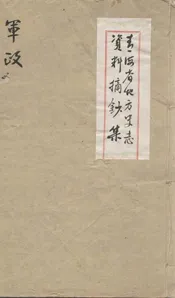 青海省地方史志
資料摘鈔集
軍政